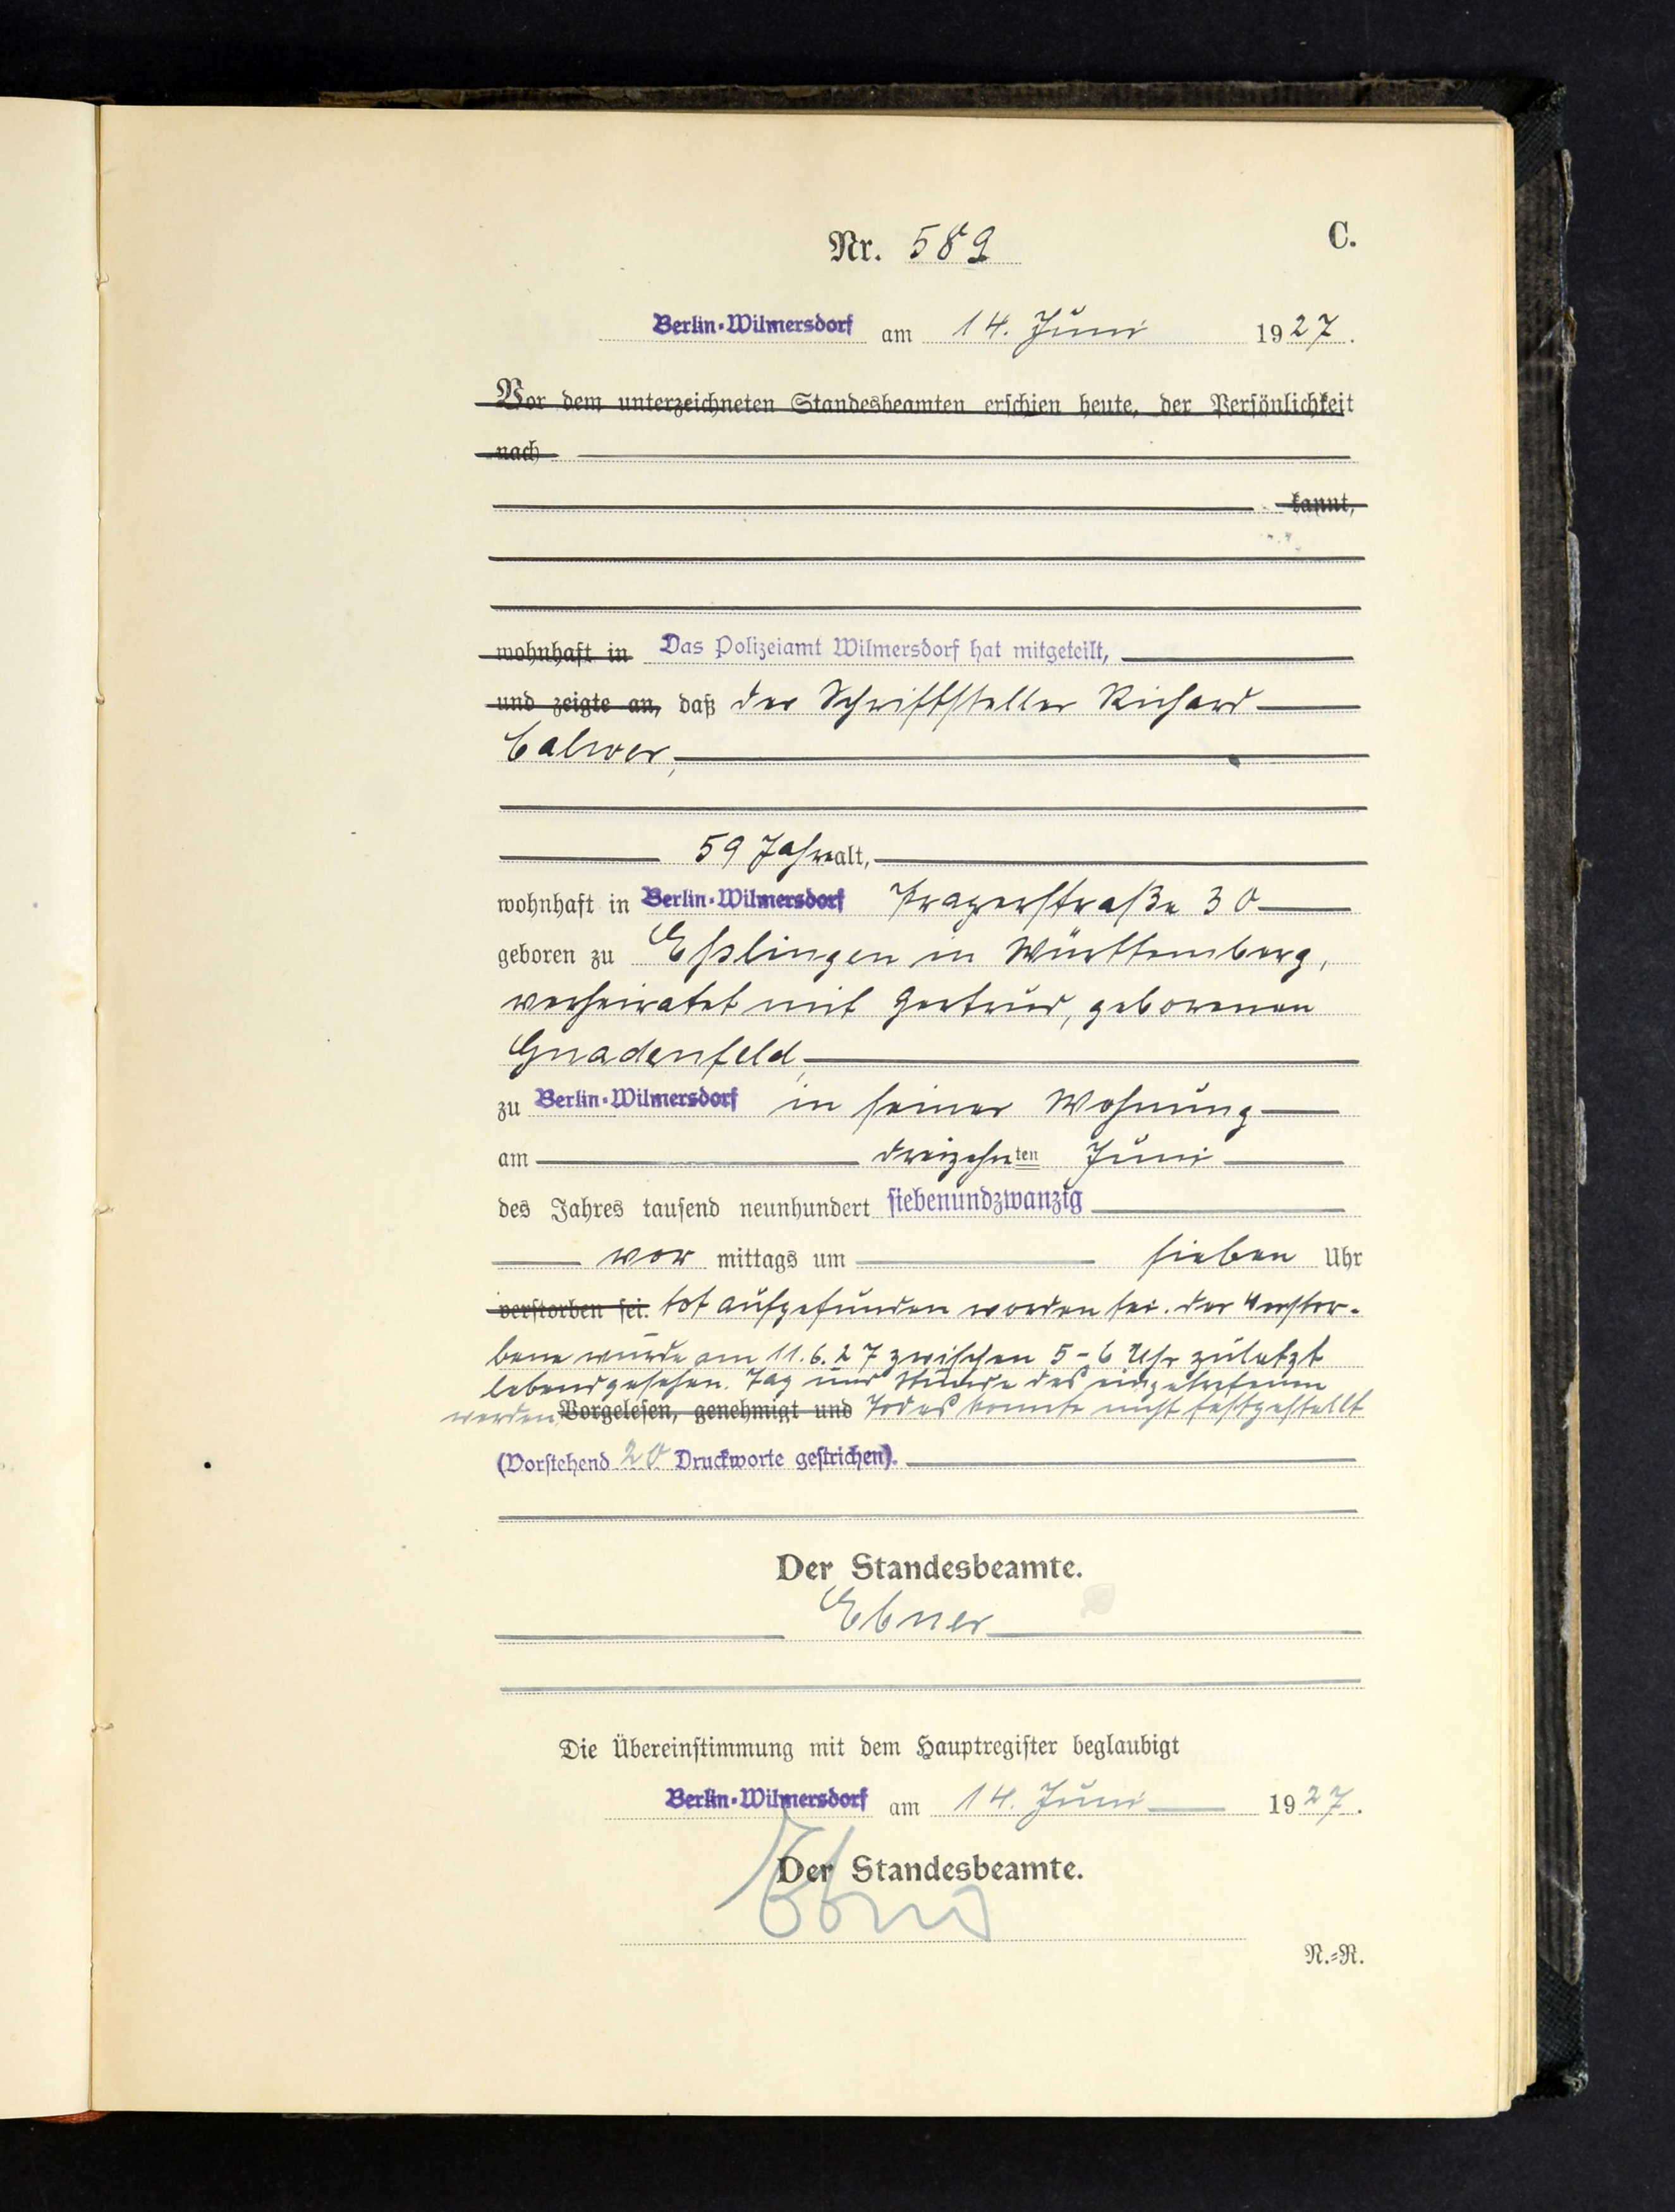 Nr. 589
C.
Berlin-Wilmersdorf am 14. Juni 1927.
Vor dem unterzeichneten Standesbeamten erschien heute, der Persönlichkeit
nach
kannt,
wohnhaft in Das Polizeiamt Wilmersdorf hat mitgeteilt,
und zeigte an, daß der Schriftsteller Richard
Calwer,
59 Jahre alt,
wohnhaft in Berlin-Wilmersdorf Pragerstraße 30
geboren zu Eßlingen in Württemberg,
verheiratet mit Gertrud, geborenen
Gnadenfeld,
zu Berlin-Wilmersdorf in seiner Wohnung
am dreizehnten Juni
des Jahres tausend neunhundert siebenundzwanzig
vor mittags um sieben Uhr
verstorben sei. tot aufgefunden worden sei. Der Verstor-
bene wurde am 11.6.27 zwischen 5-6 Uhr zuletzt
lebend gesehen. Tag und Stunde des eingetretenen
werden. Vorgelesen, genehmigt und Todes konnte nicht festgestellt
(Vorstehend 20 Druckworte gestrichen).
Der Standesbeamte.
Ebner
Die Übereinstimmung mit dem Hauptregister beglaubigt
Berlin-Wilmersdorf am 14. Juni 1927.
Der Standesbeamte.
Ebner
N.-R.